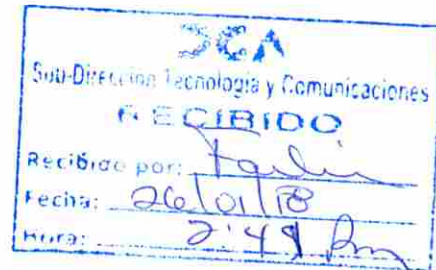 SCA
Sub-Dirección Tecnología y Comunicaciones
RECIBIDO
Recibido por:
Fecha: 26/01/18
Hora: 2:49 Pm